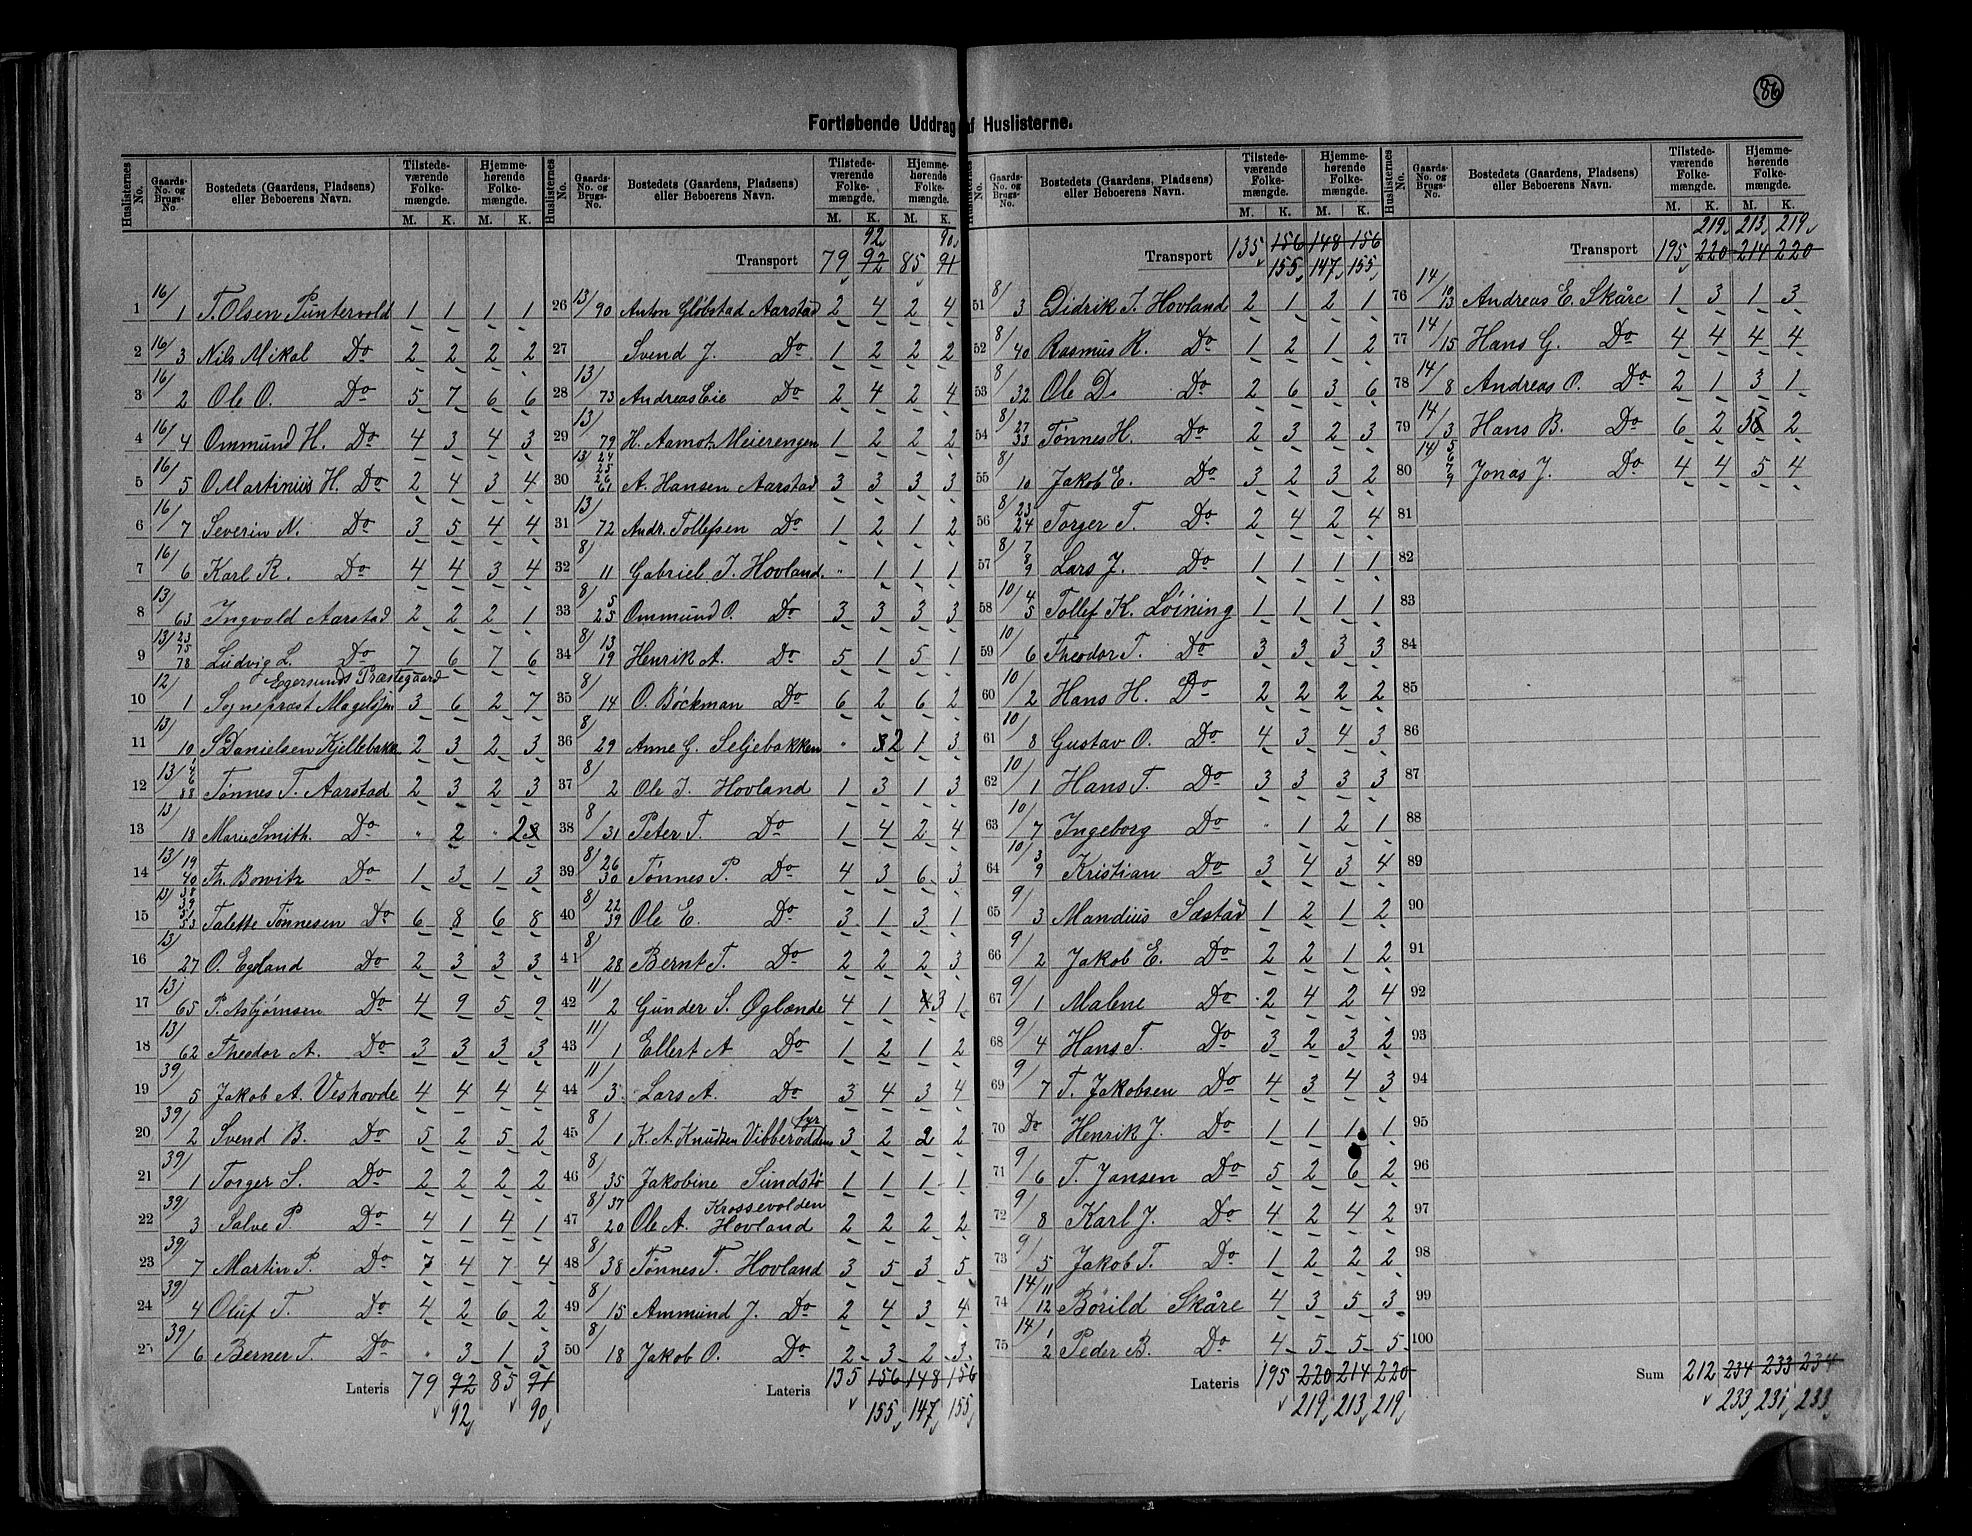 86
Fortløbende Uddrag af Huslisterne.
Huslisternes No. | Gaards-No. og Brugs-No. | Bostedets (Gaardens, Pladsens) eller Beboerens Navn. | Tilstedeværende Folkemængde. M. K. | Hjemmehørende Folkemængde. M. K.
1 16/1 T. Olsen Puntervold 1 1 1 1
2 16/3 Nils Mikal Do 2 2 2 2
3 16/2 Ole O. Do 5 7 6 6
4 16/4 Ommund H. Do 4 3 4 3
5 16/5 O Martinius H. Do 2 4 3 4
6 16/7 Severin N. Do 3 5 4 4
7 16/6 Karl R. Do 4 4 3 4
8 13/63 Ingvald Aarstad 2 2 2 1
9 13/23 75 78 Ludvig L. Do 7 6 7 6
Egersunds Præstegaard
10 12/1 Sognepræst Mageløsen 3 6 2 7
11 13/10 S Danielsen Kjellebakk 2 3 2 3
12 13/ 88 Tønnes T. Aarstad 2 3 2 3
13 13/18 Marie Smith. Do " 2 " 2
14 13/19 40 Th. Bowitz Do 1 3 1 3
15 13/38 39 51 53 Talette Tønnesen Do 6 8 6 8
16 13/27 O. Egeland Do 2 3 3 3
17 13/65 P. Asbjørnsen Do 4 9 5 9
18 13/62 Theodor A. Do 3 3 3 3
19 39/5 Jakob A. Veshovde 4 4 4 4
20 39/2 Svend B. Do 5 2 5 2
21 39/1 Torger S. Do 2 2 2 2
22 39/3 Salve P. Do 4 1 4 1
23 39/7 Martin P. Do 7 4 7 4
24 39/4 Oluf T. Do 4 2 6 2
25 39/6 Berner T. Do " 3 1 3
Lateris 79 92 85 91
92 90
Huslisternes No. | Gaards-No. og Brugs-No. | Bostedets (Gaardens, Pladsens) eller Beboerens Navn. | Tilstedeværende Folkemængde. M. K. | Hjemmehørende Folkemængde. M. K.
92 90
Transport 79 92 85 91
26 13/90 Anton Gløbstad Aarstad 2 4 2 4
27 Svend J. Do 1 2 2 2
28 13/73 Andreas Eie Do 2 4 2 4
29 13/79 H. Aamot, Meierengen 1 2 2 2
30 13/24 25 26 61 A. Hansen Aarstad 3 3 3 3
31 13/72 Andr. Tollefsen Do 1 2 1 2
32 8/11 Gabriel I. Hovland. " 1 1 1
33 8/5 25 Ommund O. Do 3 3 3 3
34 8/13 19 Henrik A. Do 5 1 5 1
35 8/14 O. Bøckman Do 6 2 6 2
36 8/29 Anne G. Seljebakken " 2 1 3
37 8/2 Ole I. Hovland 1 3 1 3
38 8/31 Peter T. Do 1 4 2 4
39 8/26 30 Tønnes P. Do 4 3 6 3
40 8/22 39 Ole E. Do 3 1 3 1
41 8/28 Bernt T. Do 2 2 2 3
42 11/2 Gunder S. Øglænde 4 1 4 3 1
43 11/1 Ellert A Do 1 2 1 2
44 11/3 Lars A. Do 3 4 3 4
45 8/1 K. A. Knudsen Vibberoddens fyr 3 2 2 2
46 8/35 Jakobine Sundstø 1 1 1 1
47 8/37 20 Ole A. Krossevolden Hovland 2 2 2 2
48 8/38 Tønnes T. Hovland 3 5 3 5
49 8/15 Ammund J. Do 2 4 3 4
50 8/18 Jakob O. Do 2 3 2 3
Lateris 135 156 148 156
155 147 155
Huslisternes No. | Gaards-No. og Brugs-No. | Bostedets (Gaardens, Pladsens) eller Beboerens Navn. | Tilstedeværende Folkemængde. M. K. | Hjemmehørende Folkemængde. M. K.
Transport 135 156 148 156
155 147 155
51 8/3 Didrik I. Hovland 2 1 2 1
52 8/40 Rasmus R. Do 1 2 1 2
53 8/32 Ole D. Do 2 6 3 6
54 8/27 33 Tønnes H. Do 2 3 2 3
55 8/10 Jakob E. Do 3 2 3 2
56 8/23 24 Torger T. Do 2 4 2 4
57 8/7 8 9 Lars J. Do 1 1 1 1
58 10/4 5 Tollef K. Løining 1 1 1 1
59 10/6 Theodor T. Do 3 3 3 3
60 10/2 Hans H. Do 2 2 2 2
61 10/8 Gustav O. Do 4 3 4 3
62 10/1 Hans T. Do 3 3 3 3
63 10/7 Ingeborg Do " 1 2 1
64 10/3 9 Kristian Do 3 4 3 4
65 9/3 Mandius Sæstad 1 2 1 2
66 9/2 Jakob E. Do 2 2 1 2
67 9/1 Malene Do 2 4 2 4
68 9/4 Hans T. Do 3 2 3 2
69 9/7 T. Jakobsen Do 4 3 4 3
70 Do Henrik J. Do 1 1 1 1
71 9/6 T. Jansen Do 5 2 6 2
72 9/8 Karl J. Do 4 2 4 2
73 9/5 Jakob T. Do 1 2 2 2
74 14/11 12 Borild Skåre 4 3 5 3
75 14/1 2 Peder B. Do 4 5 5 5
Lateris 195 220 214 220
219 213 219
Huslisternes No. | Gaards-No. og Brugs-No. | Bostedets (Gaardens, Pladsens) eller Beboerens Navn. | Tilstedeværende Folkemængde. M. K. | Hjemmehørende Folkemængde. M. K.
219 213 219
Transport 195 220 214 220
76 14/10 13 Andreas E. Skåre 1 3 1 3
77 14/15 Hans G. Do 4 4 4 4
78 14/8 Andreas O. Do 2 1 3 1
79 14/3 Hans B. Do 6 2 5 2
80 14/5 6 7 9 Jonas J. Do 4 4 5 4
81
82
83
84
85
86
87
88
89
90
91
92
93
94
95
96
97
98
99
100
Sum 212 234 233 234
233 231 233